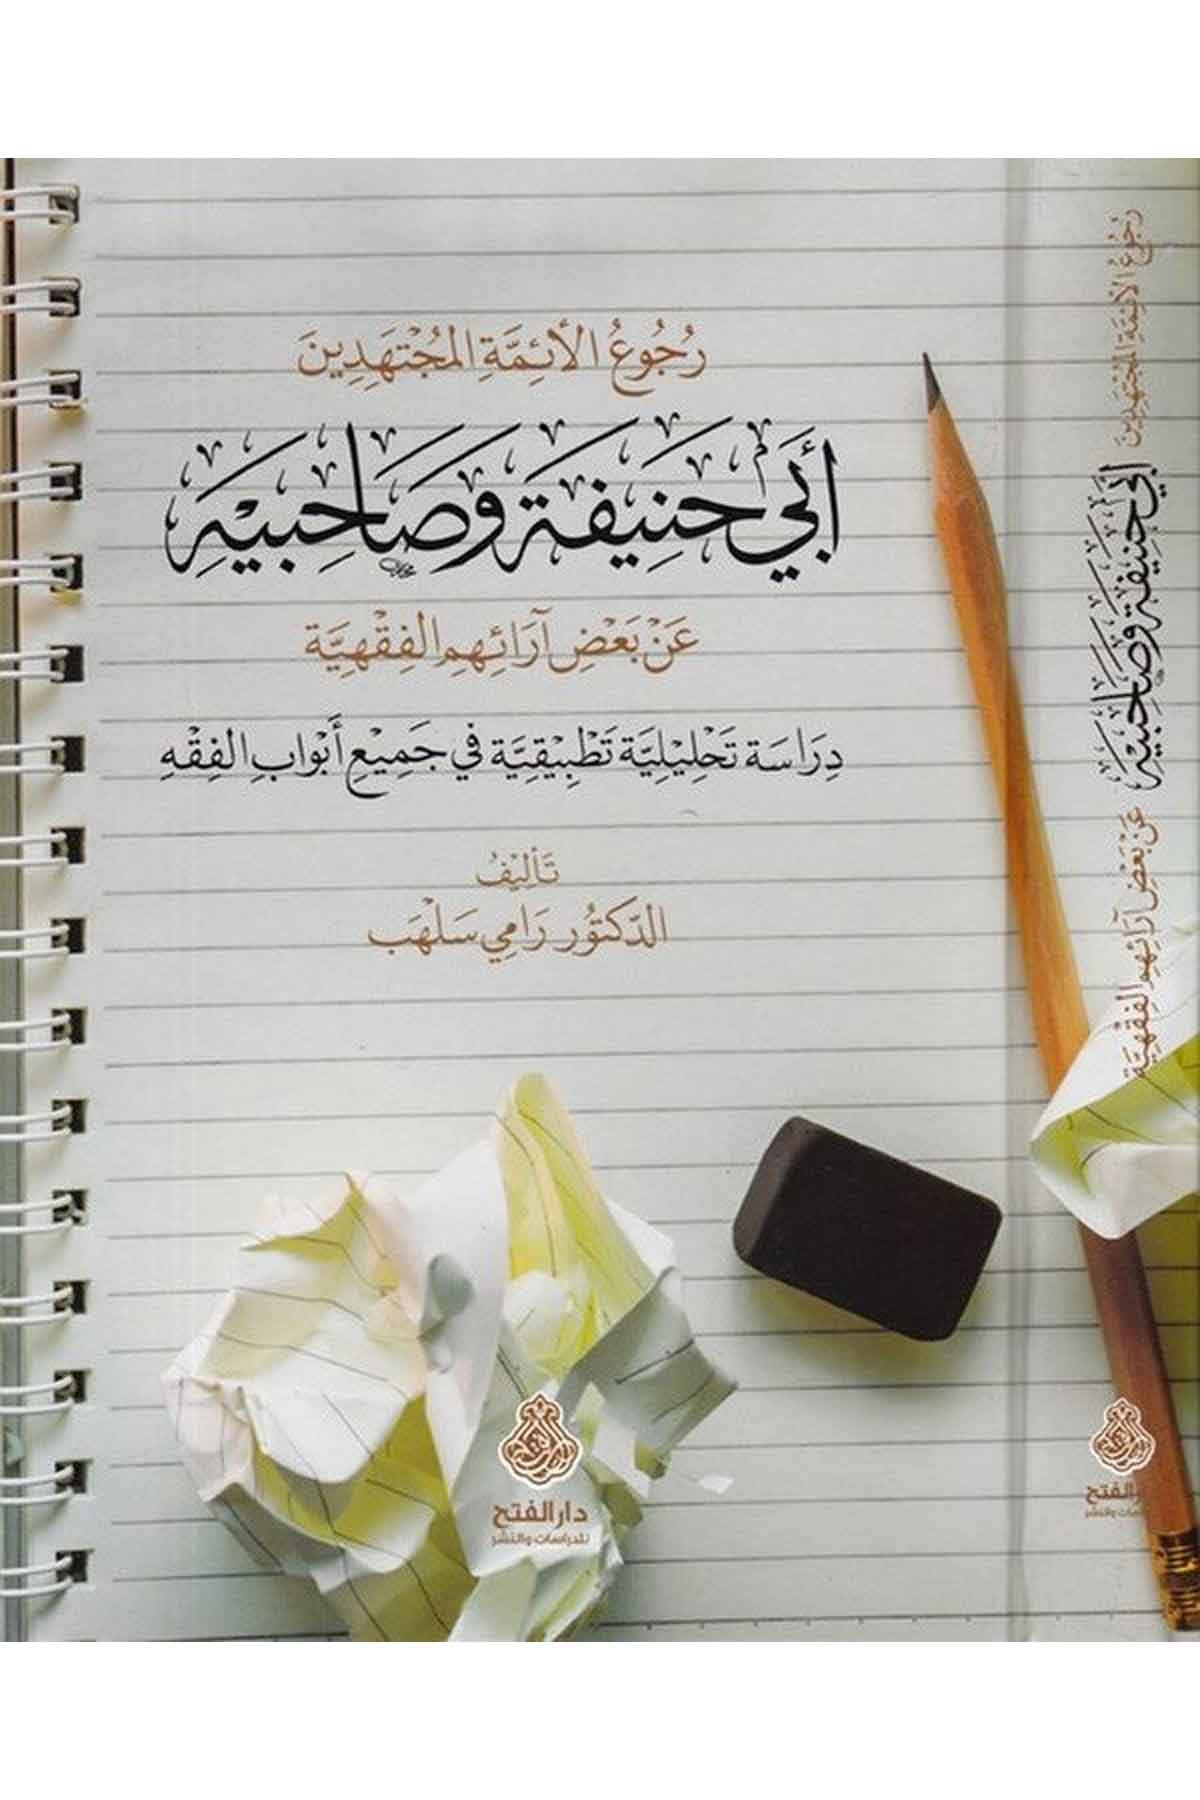 رُجُوعُ الأَئِمَّةِ المُجْتَهِدِينَ
أَبِي حَنِيفَة وَصَاحِبَيْهِ
عَنْ بَعْضِ آرَائِهِم الفِقْهِيَّة
دِرَاسَة تَحْلِيلِيَّة تَطْبِيقِيَّة فِي جَمِيْعِ أَبْوَابِ الفِقْهِ
تَأْلِيْفُ
الدّكتُور رَامِي سَلْهَب
دار الفتح
للدراسات والنشر
رُجُوعُ الأَئِمَّةِ المُجْتَهِدِينَ
أَبِي حَنِيفَة وَصَاحِبَيْهِ
عَنْ بَعْضِ آرَائِهِم الفِقْهِيَّة